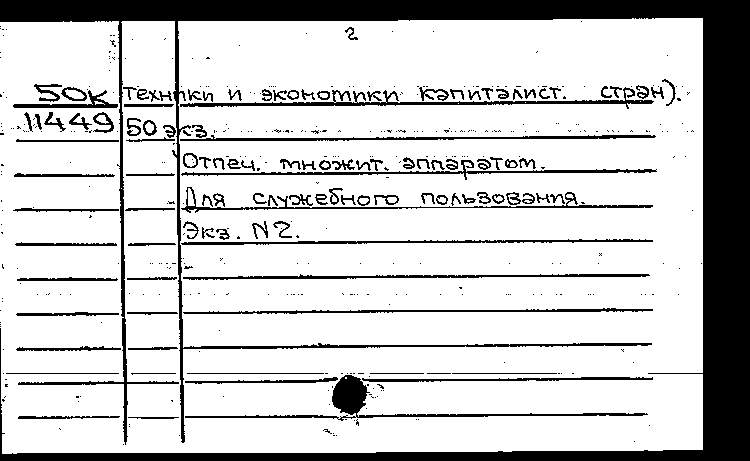 2
50К техники и экономики капиталист. стран).
11449 50 экз.
Отпеч. множит. аппаратом.
Для служебного пользования.
Экз. N2.